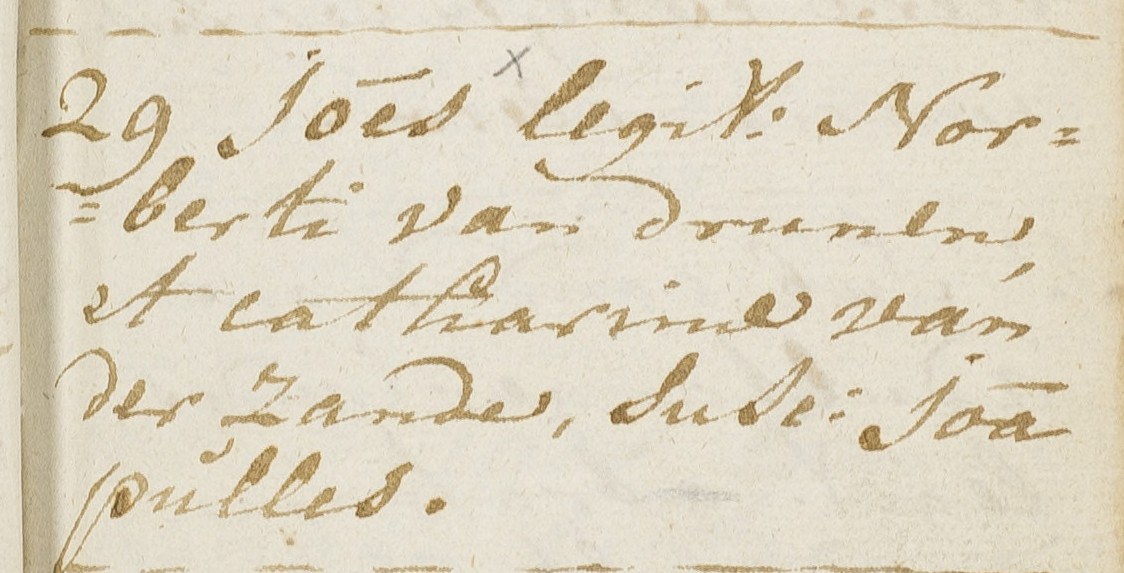 29 Joēs legit: Nor=
=berti van drunen
et catharinæ van
der Zande, Susc: Joā
pulles.